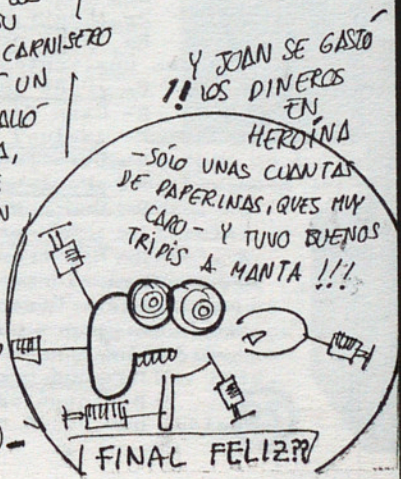 SU
CARNISERO
UN
ALLÓ
A,
E
N
Y JOAN SE GASTÓ
!! LOS DINEROS
EN
HEROÍNA
-SÓLO UNAS CUANTAS
DE PAPERINAS, QUES MUY
CARO- Y TUVO BUENOS
TRIPIS A MANTA !!!
¡FINAL FELIZ??